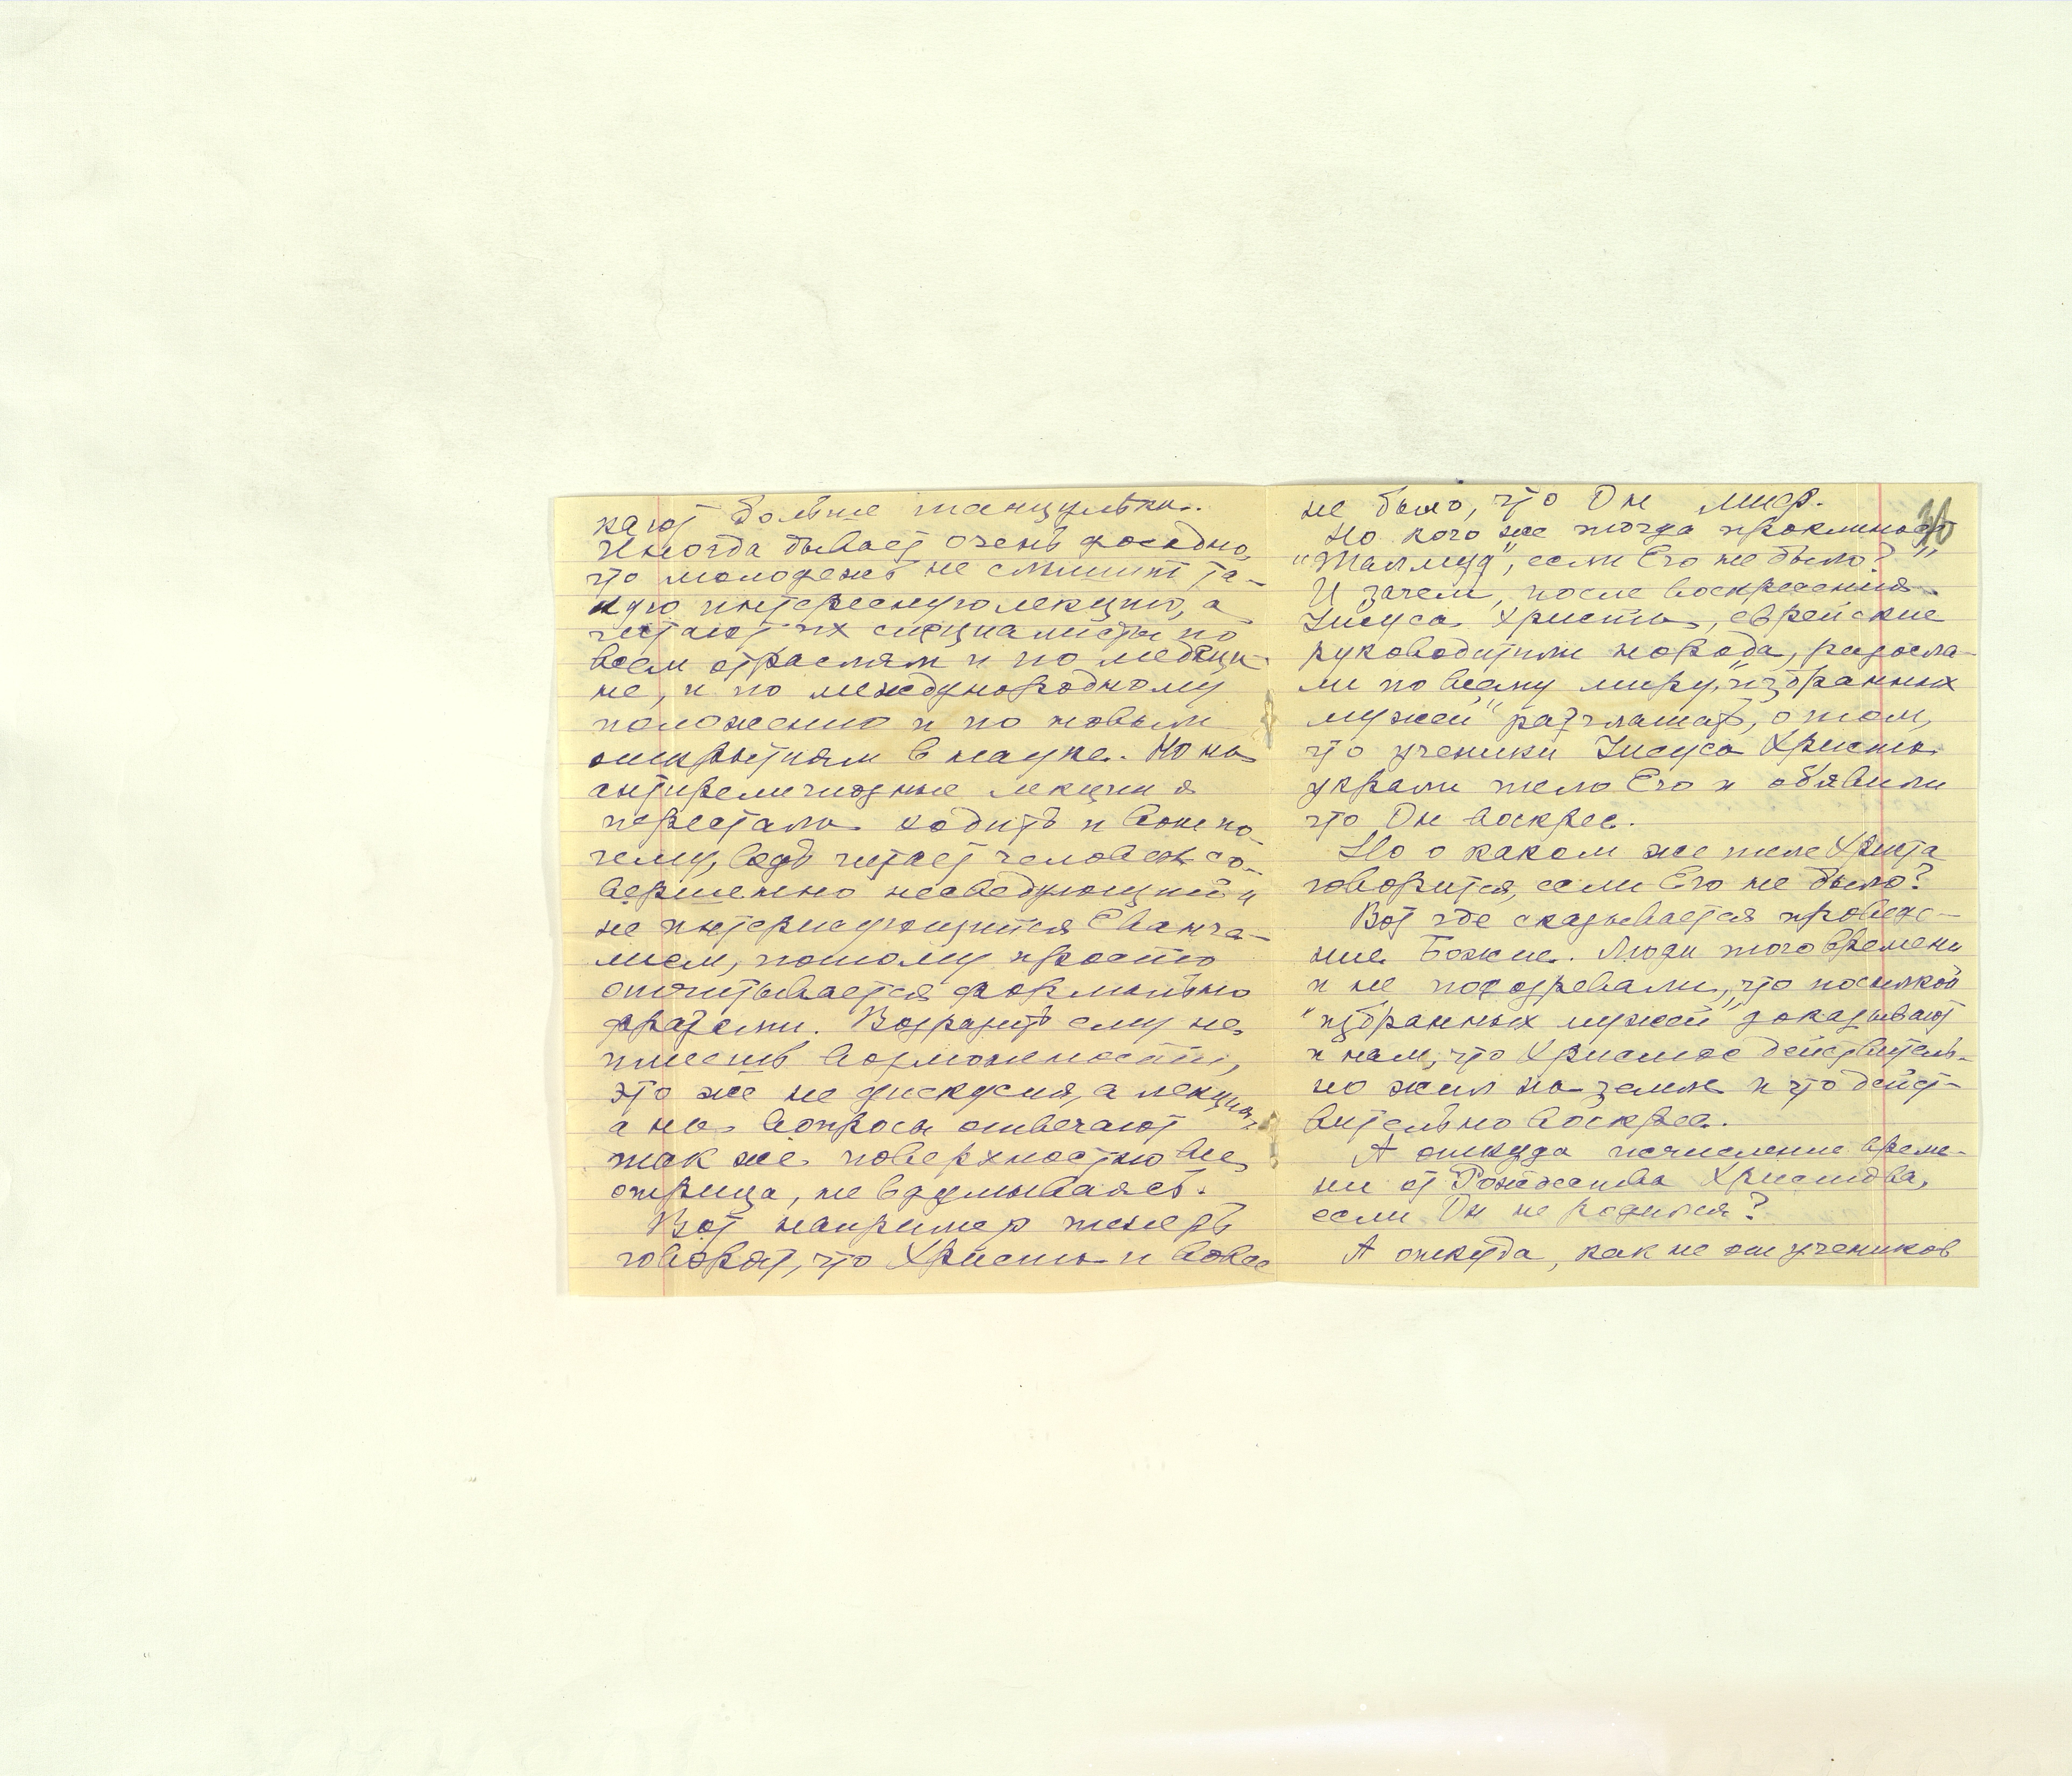 кают больше танцульки.
Иногда бывает очень досадно,
что молодежь не слышит та-
кую интересную лекцию, а
читают их специалисты по
всем отраслям и по медици-
не, и по международному
положению и по новым
открытиям в науке. Но на
антирелигиозные лекции я
перестала ходить и вот по-
чему, ведь читает человек со-
вершенно несведующий и
не интерисующийся Еванге-
лием, потому просто
отчитывается формально
фразами. Возразить ему не
имеешь возможности,
это же не дискусия, а лекция,
а на вопросы отвечают
так же поверхностно все
отрица, не вдумываясь.
Вот например теперь
говорят, что Христа и вовсе
30
не было, что Он миф.
Но кого же тогда проклинает
"Талмуд", если Его не было?"
И зачем, после воскресения
Иисуса Христа, еврейские
руководители народа, разосла-
ли по всему миру, "избранных
мужей" разглашать, о том,
что ученики Иисуса Христа
украли тело Его и обявили
что Он воскрес.
Но о каком же теле Христа
говорится, если Его не было?
Вот где сказывается проведе-
ние Божие. Люди того времени
и не подозревали, что посылкой
"избранных мужей" доказывают
и нам, что Христос действитель-
но жил на земле и что дейст-
вительно воскрес.
А откуда исчисление време-
ни от Рождества Христова,
если Он не родился?
А откуда, как не от учеников